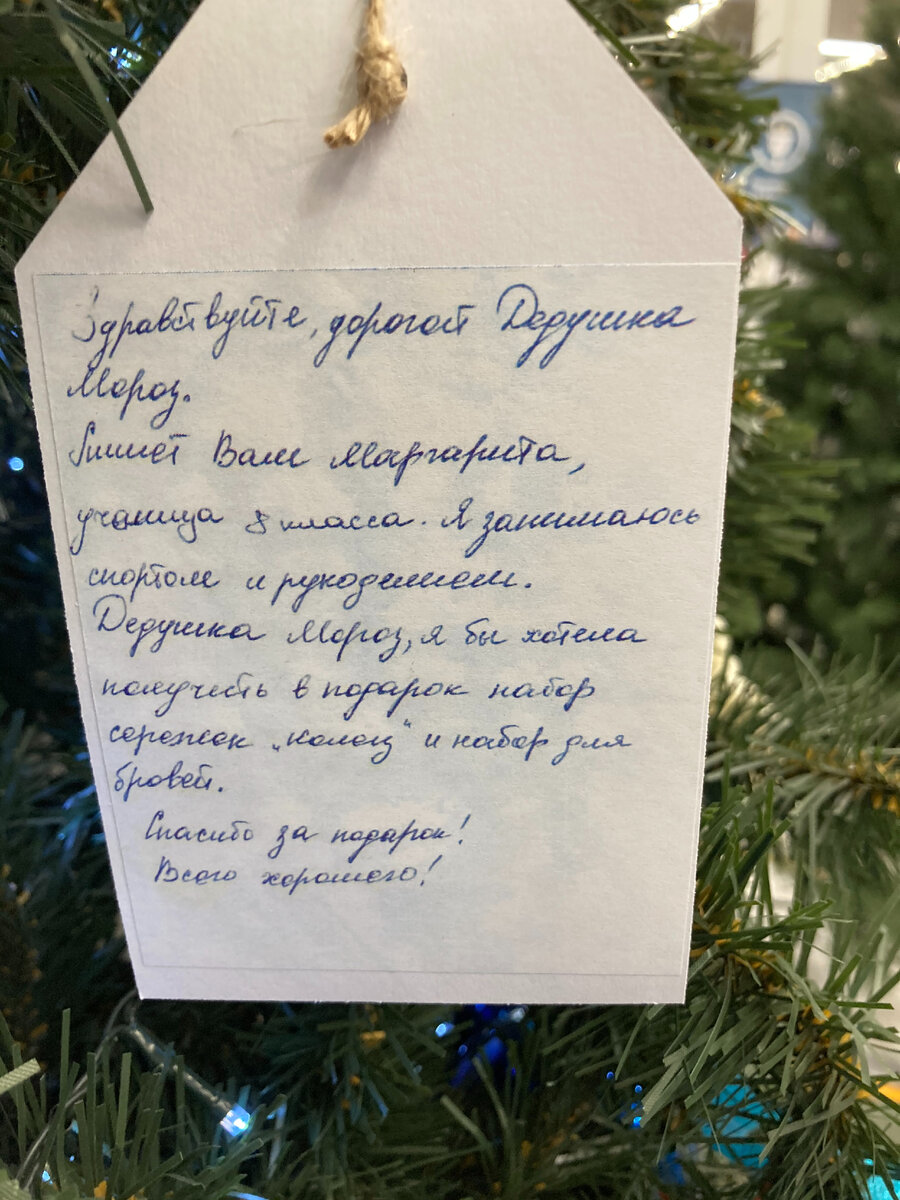 Здравствуйте, дорогой Дедушка
Мороз.
Пишет Вам Маргарита,
ученица 8 класса. Я занимаюсь
спортом и рукоделием.
Дедушка Мороз, я бы хотела
получить в подарок набор
сережек „колец" и набор для
бровей.
Спасибо за подарок!
Всего хорошего!